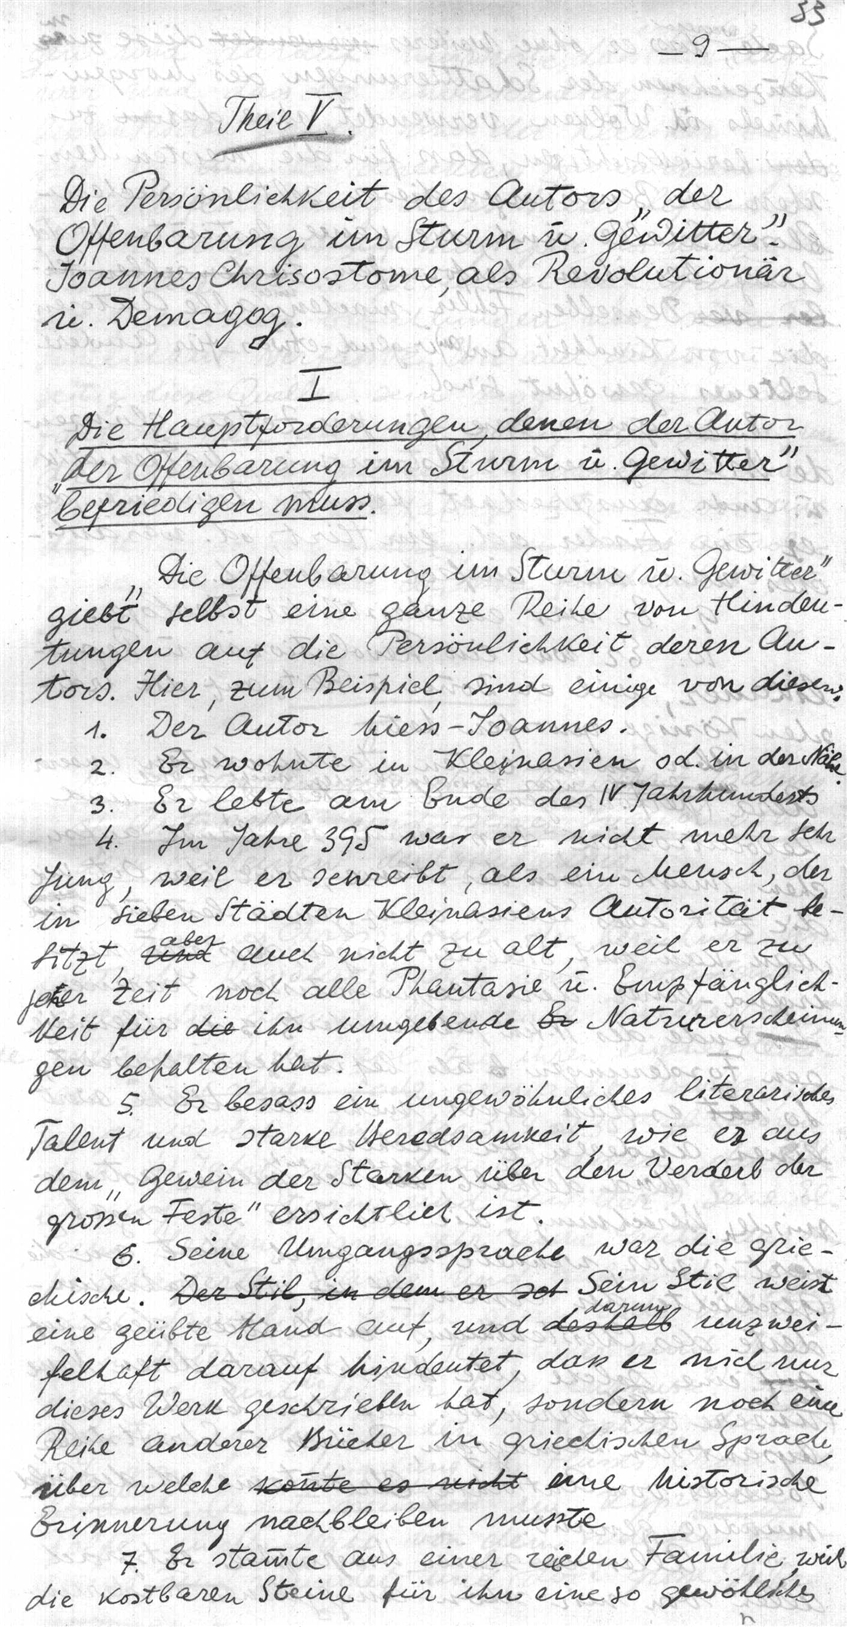 33
— 9 —
Theil V.
Die Persönlichkeit des Autors „der
Offenbarung im Sturm ū. Gewitter“.
Joannes Chrisostome, als Revolutionär
ū. Demagog.
I
Die Hauptforderungen, denen der Autor
„der Offenbarung im Sturm ū. Gewitter“
befriedigen muss.
„Die Offenbarung im Sturm ū. Gewitter“
giebt selbst eine ganze Reihe von Hindeu-
tungen auf die Persönlichkeit deren Au-
tors. Hier, zum Beispiel, sind einige von diesen:
1. Der Autor hiess - Joannes.
2. Er wohnte in Kleinasien od. in der Nähe.
3. Er lebte am Ende des IV Jahrhunderts
4. Im Jahre 395 war er nicht mehr sehr
jung, weil er schreibt, als ein Mensch, der
in sieben Städten Kleinasiens Autorität be-
sitzt, und aber auch nicht zu alt, weil er zu
jener Zeit noch alle Phantasie ū. Empfänglich-
keit für die ihn umgebende Er Naturerscheinun-
gen behalten hat.
5. Er besass ein ungewöhnliches literarisches
Talent und starke Beredsamkeit, wie er aus
dem „Gewein der Starken über den Verderb der
grossen Feste“ ersichtlich ist.
6. Seine Umgangssprache war die grie-
chische. Der Stil, in dem er sch Sein Stil weist
eine geübte Hand auf, und deshalb darum unzwei-
felhaft darauf hindeutet, dass er nich nur
dieses Werk geschrieben hat, sondern noch eine
Reihe anderer Bücher in griechischen Sprache,
über welche kon̄te es nicht eine historische
Erinnerung nachbleiben musste
7. Er stam̄te aus einer reichen Familie, weil
die kostbaren Steine für ihn eine so gewöhliches
n